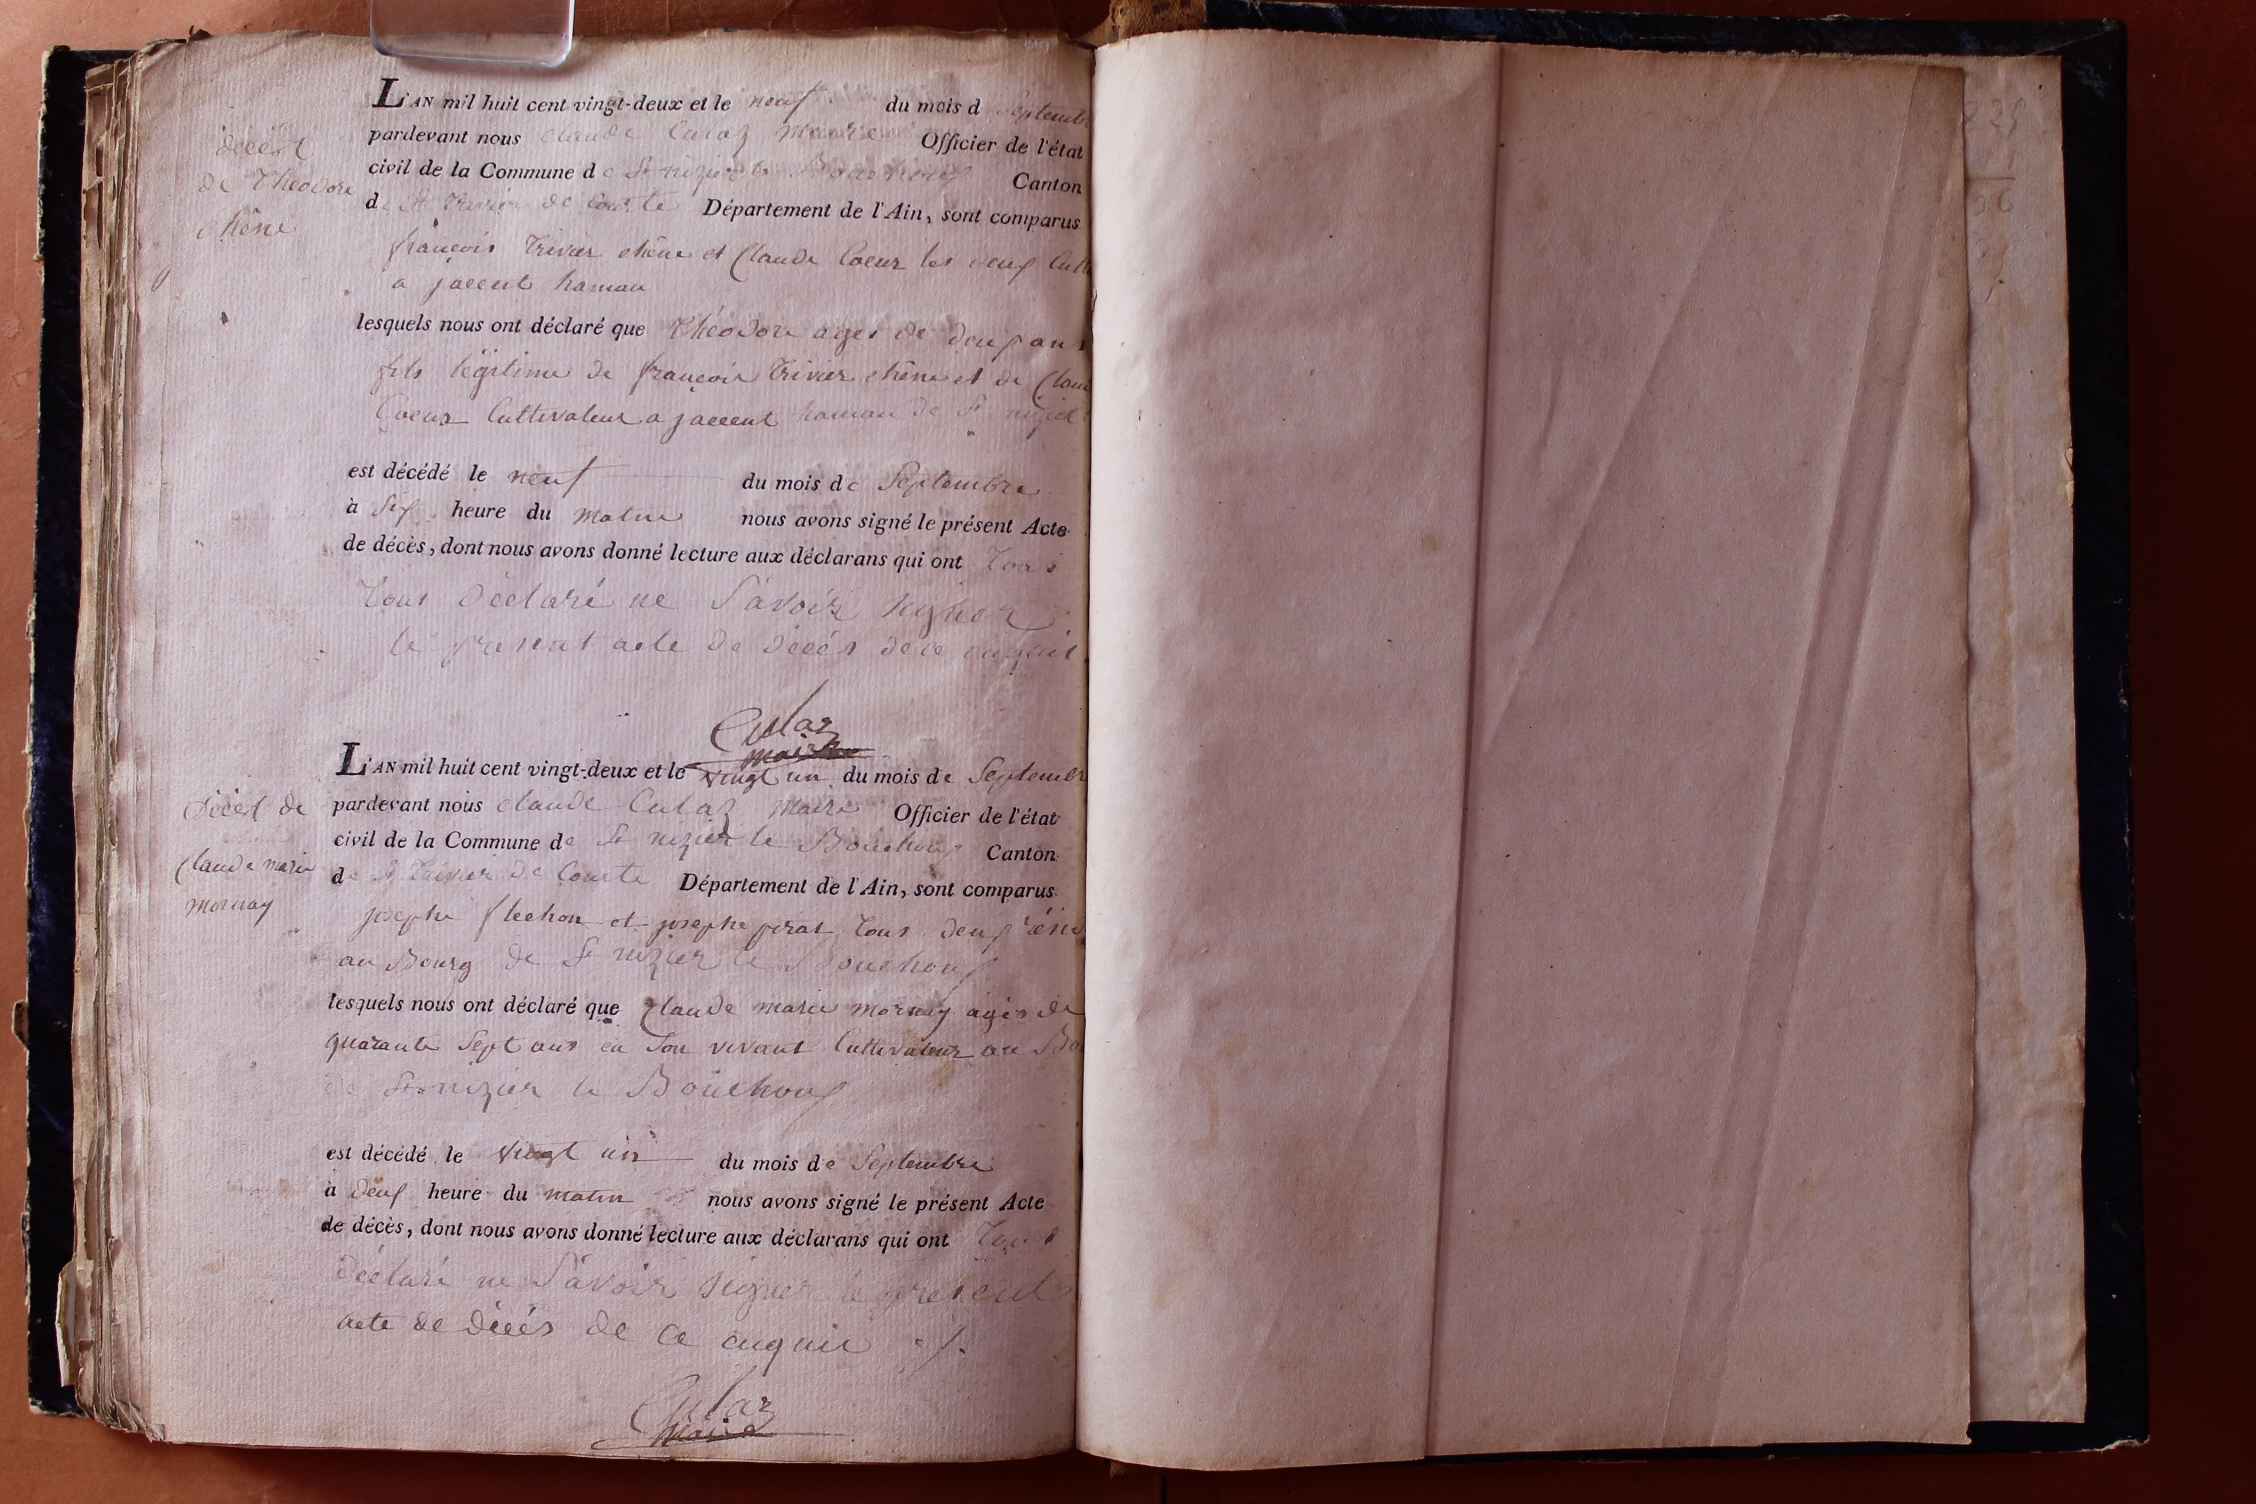 L'AN mil huit cent vingt-deux et le neuf du mois d Septemb
pardevant nous claude Culaz Maire Officier de l'état
civil de la Commune de St nizier le Bouchoux Canton
de St Trivier de Courte Département de l'Ain, sont comparus
françois Trivier chêne et Claude Coeur les deux Cult
a jacent hamau
lesquels nous ont déclaré que Théodore ages de deux ans
fils légitime de françois Trivier chêne et de Clau
Coeur Cultivateur a jaccent hamau de St nizier
est décédé le neuf du mois de Septembre
à Six heure du matin nous avons signé le présent Acte
de décès, dont nous avons donné lecture aux déclarans qui ont Tous
Tous Déclaré ne Savoir signer
le present acte de décés de ce enquis
Culaz
maire
décést
de Théodore
chêne
L'AN mil huit cent vingt-deux et le vingt un du mois de Septembr
pardevant nous claude Culaz Maire Officier de l'état
civil de la Commune de St nizier le Bouchoux Canton
de St Trivier de Courte Département de l'Ain, sont comparus
josephe flechon et josephe pirat Tous deux
au Bourg de St nizier le Bouchoux
lesquels nous ont déclaré que Claude marie mornay agés de
quarante Sept ans en Son vivant Cultivateur au Bo
de St nizier le Bouchoux
est décédé le vingt un du mois de Septembre
à deux heure du matin nous avons signé le présent Acte
de décès, dont nous avons donné lecture aux déclarans qui ont Tous
Déclaré ne Savoir signer le present
acte de décés de ce enquis
Culaz
Maire
décést de
Claude marie
mornay